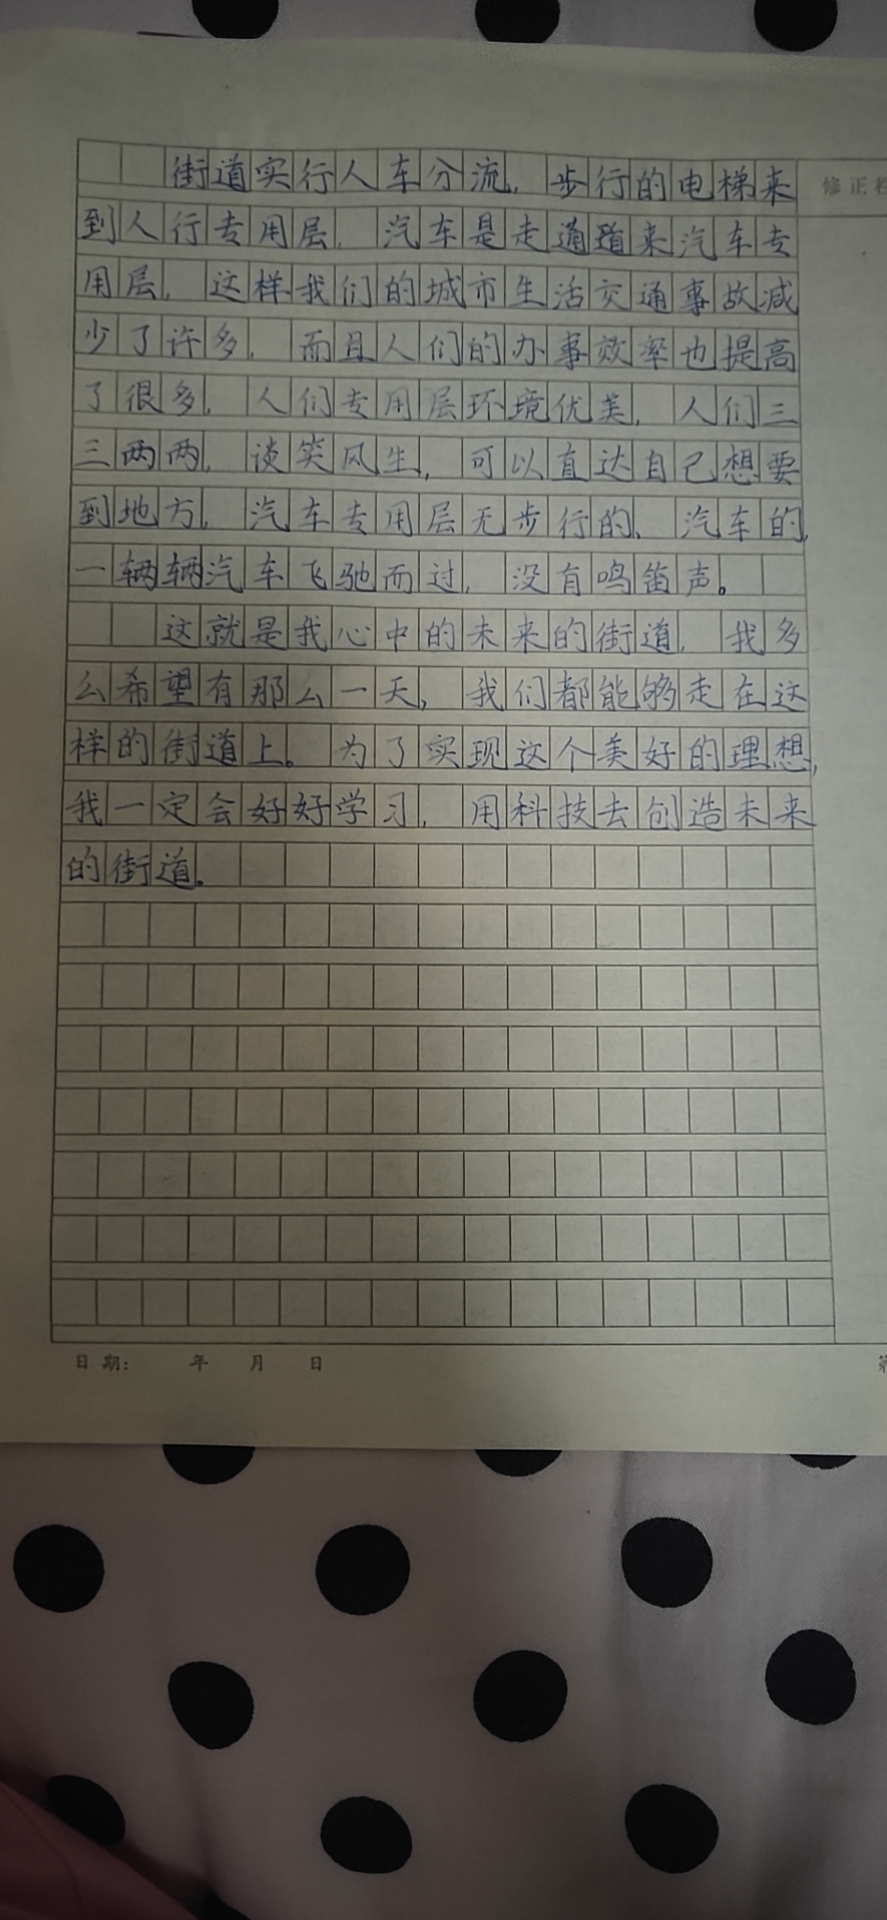 街道实行人车分流，步行的电梯来
到人行专用层，汽车是走通道来汽车专
用层，这样我们的城市生活交通事故减
少了许多，而且人们的办事效率也提高
了很多，人们专用层环境优美，人们三
三两两，谈笑风生，可以直达自己想要
到地方，汽车专用层无步行的、汽车的，
一辆辆汽车飞驰而过，没有鸣笛声。
这就是我心中的未来的街道，我多
么希望有那么一天，我们都能够走在这
样的街道上。为了实现这个美好的理想，
我一定会好好学习，用科技去创造未来
的街道。
修正栏
日期： 年 月 日